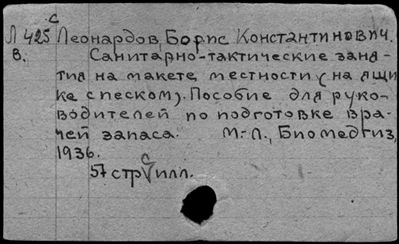 с
Л 425 Леонардов, Борис Константинович.
в. Санитарно-тактические заня-
тия на макете местности (на ящи-
ке с песком). Пособие для руко-
водителей по подготовке вра-
чей запаса. М.-Л., Биомедгиз,
1936.
57 стр с илл.